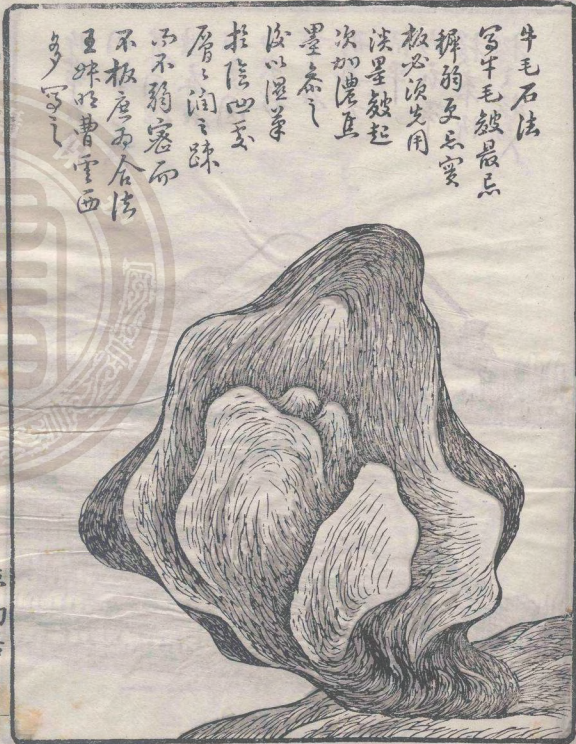 牛毛石法
写牛毛皴最忌
穉弱更忌實
板必須先用
淡墨皴起
次加濃焦
墨叅之
後以濕筆
於陰凹处
層〻潤之踈
而不弱密而
不板庶为合法
王叔明曹雲西
多寫之